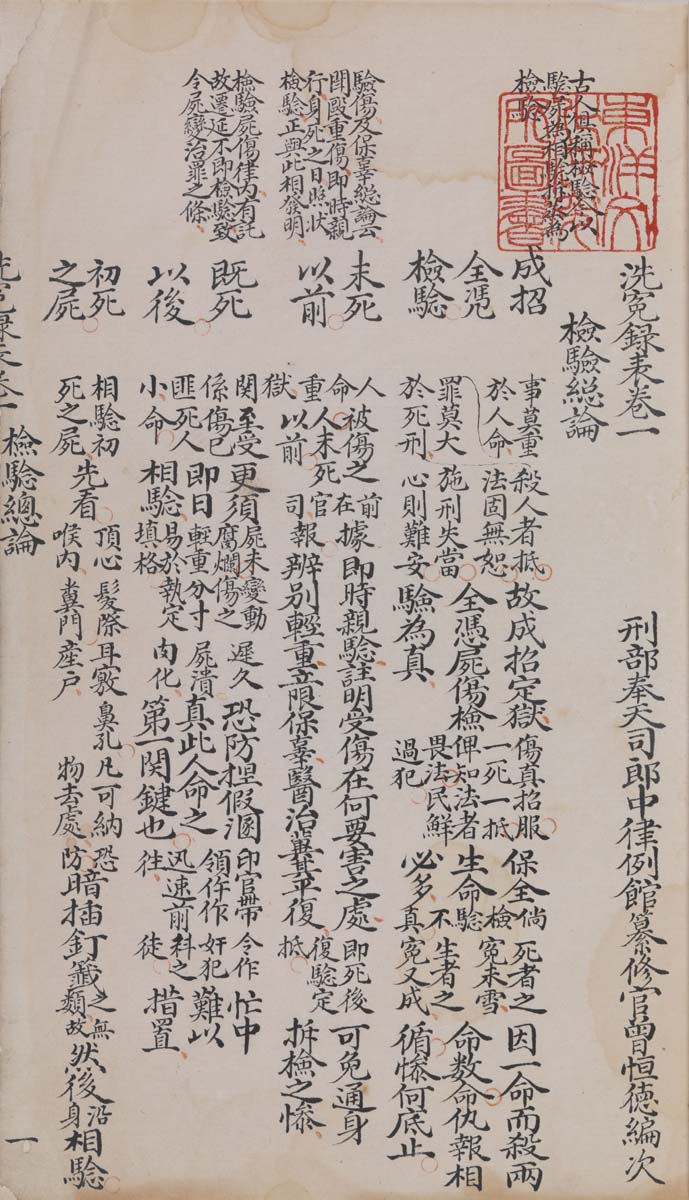 洗冤録表卷一
刑部奉天司郎中律例館纂修官曾恒德編次
檢驗総論
古人俱稱檢驗今以
驗屍為相驗拆蒸為
檢驗
成招
全凴
檢騐
事莫重
於人命
罪莫大
於死刑
殺人者抵
法固無恕
施刑失當
心則難安
故成招定獄
全馮屍傷檢
驗為真
傷真招服
一死一抵
俾知法者
畏法民鮮
過犯
保全
生命
必多
倘
檢
驗不
真
死者之
冤未雪
生者之
冤又成
因一命而殺兩
命数命仇報相
循慘何底止
驗傷及保辜総論云
鬪毆重傷即時親
行身死之日照狀
檢驗正與此相發明
未死
以前
人命重獄
被傷之人未死以前
在前官司
據報
即時親驗註明受傷在何要害之處
辨别輕重立限保辜醫治冀其平復
即死後
復驗定
抵
可免通身
拆檢之慘
檢驗屍傷律内有託
故遷延不即檢驗致
令屍變治罪之條
既死
以後
関係匪小
至受
傷已
死人
命
更須
即日
相驗
屍未變動
腐爛傷之
輕重分寸
易於執定
填格
遲久
屍潰
肉化
恐防捏假溷
真此人命之
第一関鍵也
印官帶
領仵作
迅速前
徃
令作
奸犯
科之
徒
忙中
難以
措置
初死
之屍
相驗初
死之屍
先看
頂心
髮際
耳竅
鼻孔
喉内
糞門
産户
凡可納
物去處
恐防
暗插釘籤
之類
無故
然後
沿身
相驗
洗冤録表卷一
檢驗總論
一